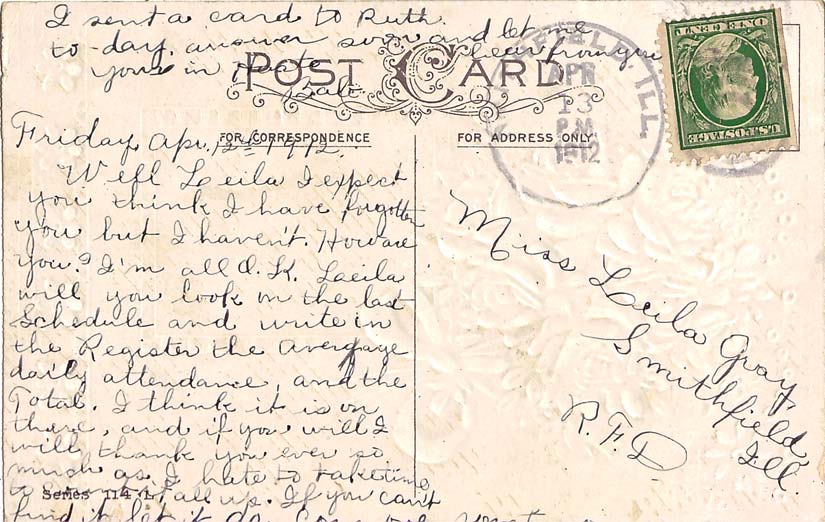 I sent a card to Ruth
to-day, answer soon and let me
hear from you
yours in haste
Bab
POST CARD
FOR CORRESPONDENCE
FOR ADDRESS ONLY
ILL.
APR
13
P.M.
1912
U.S. POSTAGE
ONE CENT
Friday Apr. 12th 1912.
Well Leila I expect
you think I have forgotten
you but I haven't. How are
you? I'm all O.K. Laeila
will you look on the last
Schedule and write in
the Register the average
daily attendance, and the
Total. I think it is on
there, and if you will I
will thank you ever so
much as I hate to take time
to all up. If you can't
find it let it go
Series 114 L
Miss Leila Gray,
Smithfield,
Ill.
R.F.D